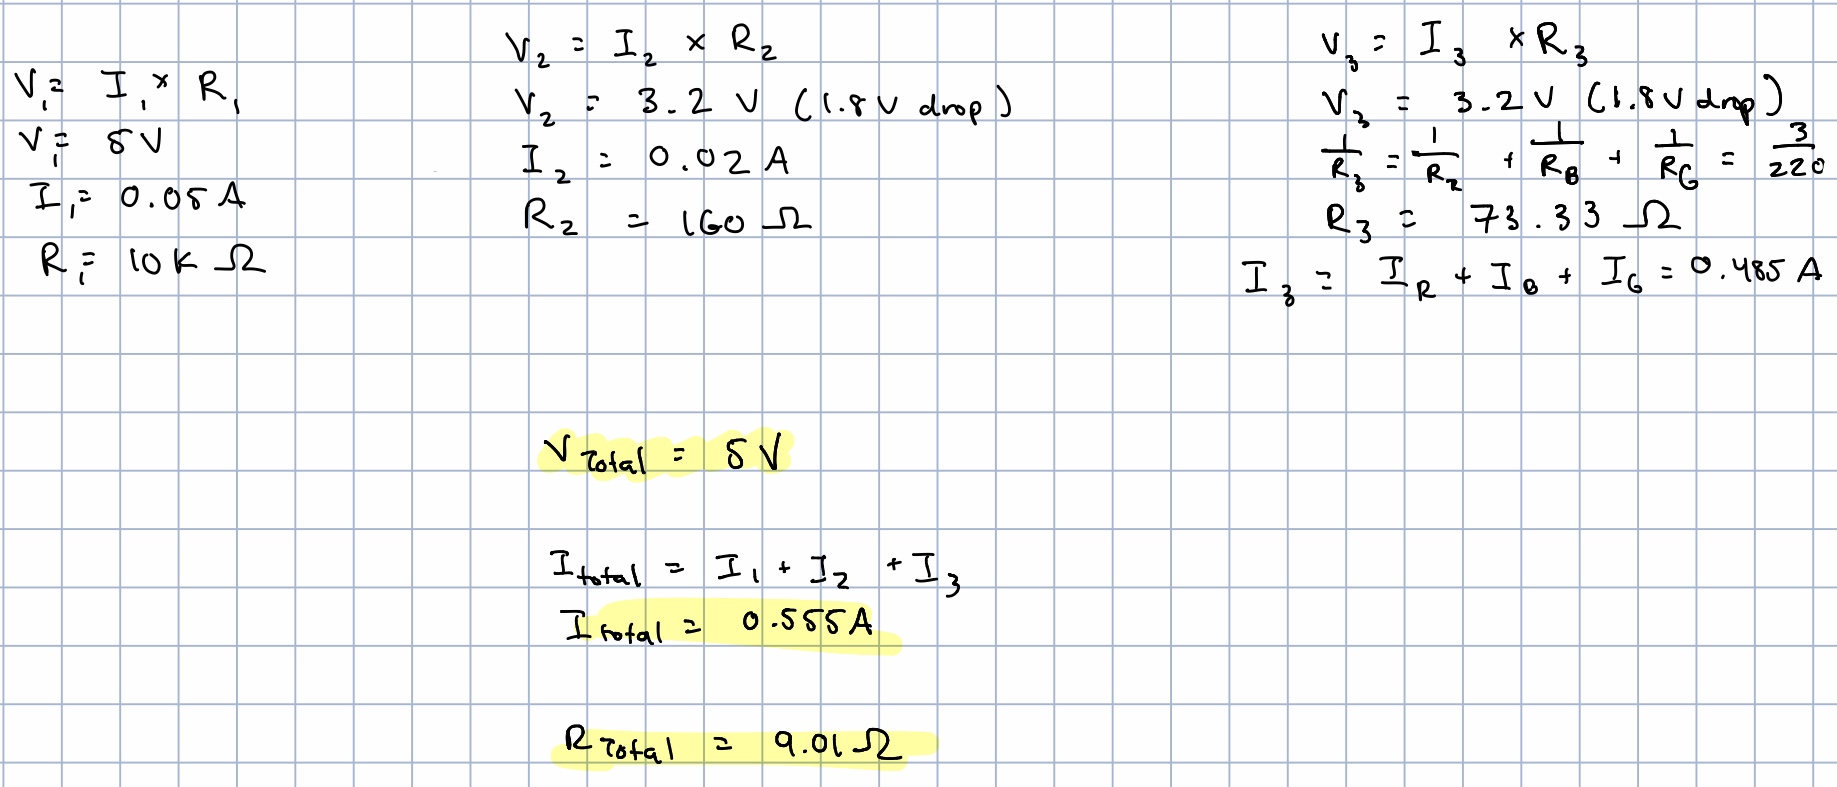 V₁ = I₁ × R₁
V₁ = 5V
I₁ = 0.05 A
R₁ = 10K Ω
V₂ = I₂ × R₂
V₂ = 3.2 V (1.8V drop)
I₂ = 0.02 A
R₂ = 160 Ω
V₃ = I₃ × R₃
V₃ = 3.2V (1.8V drop)
1/R₃ = 1/R_R + 1/R_B + 1/R_G = 3/220
R₃ = 73.33 Ω
I₃ = I_R + I_B + I_G = 0.485 A
V Total = 5V
I total = I₁ + I₂ + I₃
I total = 0.555A
R Total = 9.01 Ω